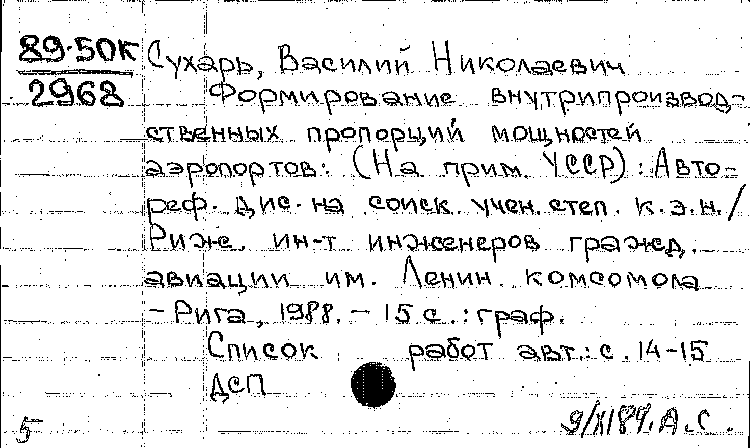 89-50К
2968
Сухарь, Василий Николаевич
Формирование внутрипроизвод-
ственных пропорций мощностей
аэропортов: (На прим. УССР): Авто-
реф. дис. на соиск. учен. степ. к.э.н./
Риж. ин-т инженеров гражд.
авиации им. Ленин. комсомола
- Рига, 1988. - 15 с.: граф.
Список работ авт.: с. 14-15
ДСП
5
9/XI89. А.С.